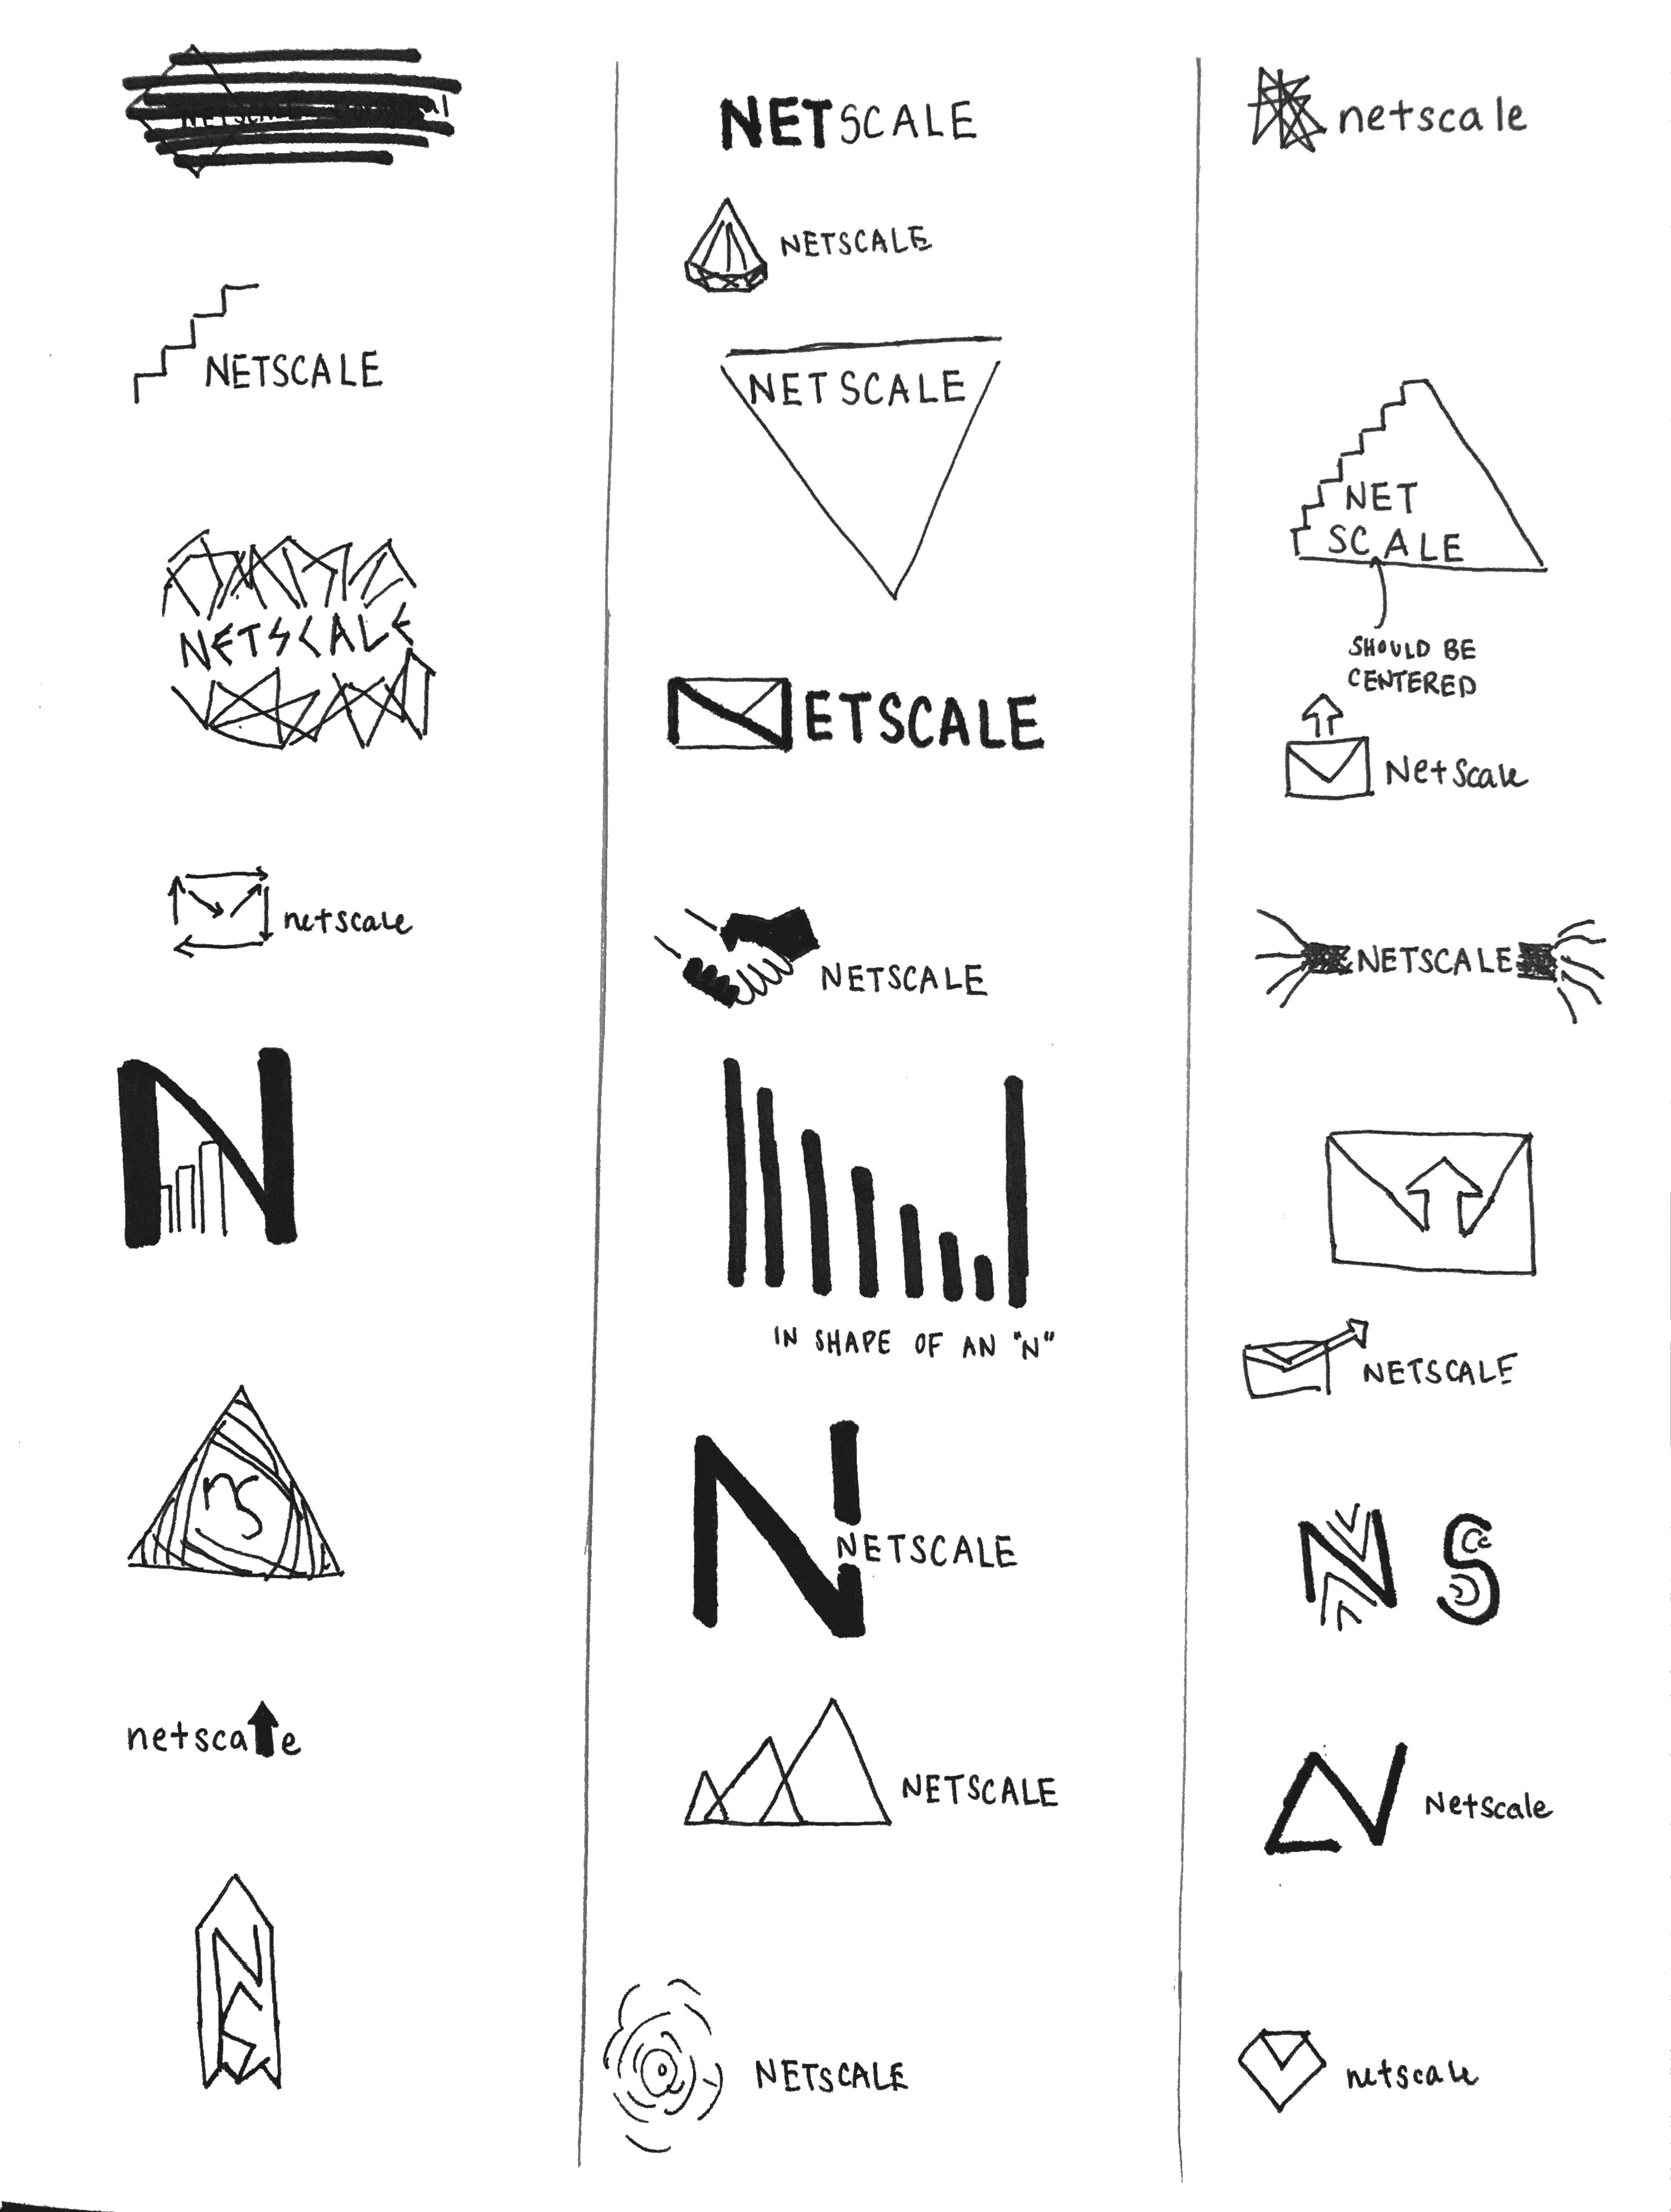 NETSCALE
NETSCALE
netscale
N
ns
netscale
NS
NETSCALE
NETSCALE
NETSCALE
NETSCALE
NETSCALE
IN SHAPE OF AN "N"
N
NETSCALE
NETSCALE
NETSCALE
netscale
NET
SCALE
SHOULD BE
CENTERED
NetScale
NETSCALE
NETSCALE
N S
N Netscale
netscale